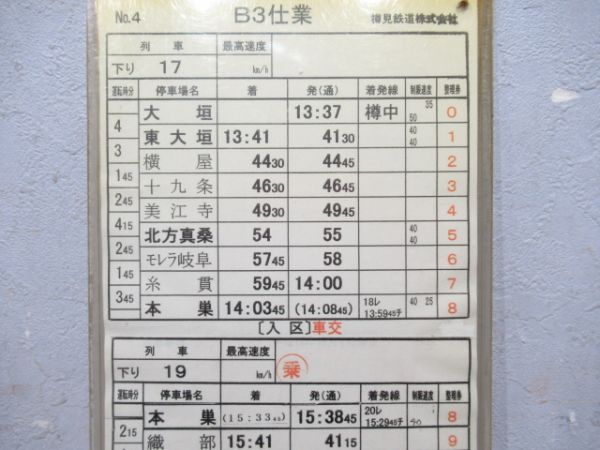 No.4 B3仕業 樽見鉄道株式会社
列車 最高速度
下り 17 km/h
運転時分 停車場名 着 発(通) 着発線 制限速度 整理券
大垣 13:37 樽中 50 35 0
4
東大垣 13:41 41 30 40 40 1
3
横屋 44 30 44 45 2
1 45
十九条 46 30 46 45 3
2 45
美江寺 49 30 49 45 4
4 15
北方真桑 54 55 40 40 5
2 45
モレラ岐阜 57 45 58 6
1 45
糸貫 59 45 14:00 7
3 45
本巣 14:03 45 (14:08 45) 18レ 13:59 45チ 40 25 8
〔入区〕車交
列車 最高速度
下り 19 km/h 乗
運転時分 停車場名 着 発(通) 着発線 制限速度 整理券
本巣 (15:33 45) 15:38 45 20レ 15:29 45チ 8
2 15
織部 15:41 41 15 9